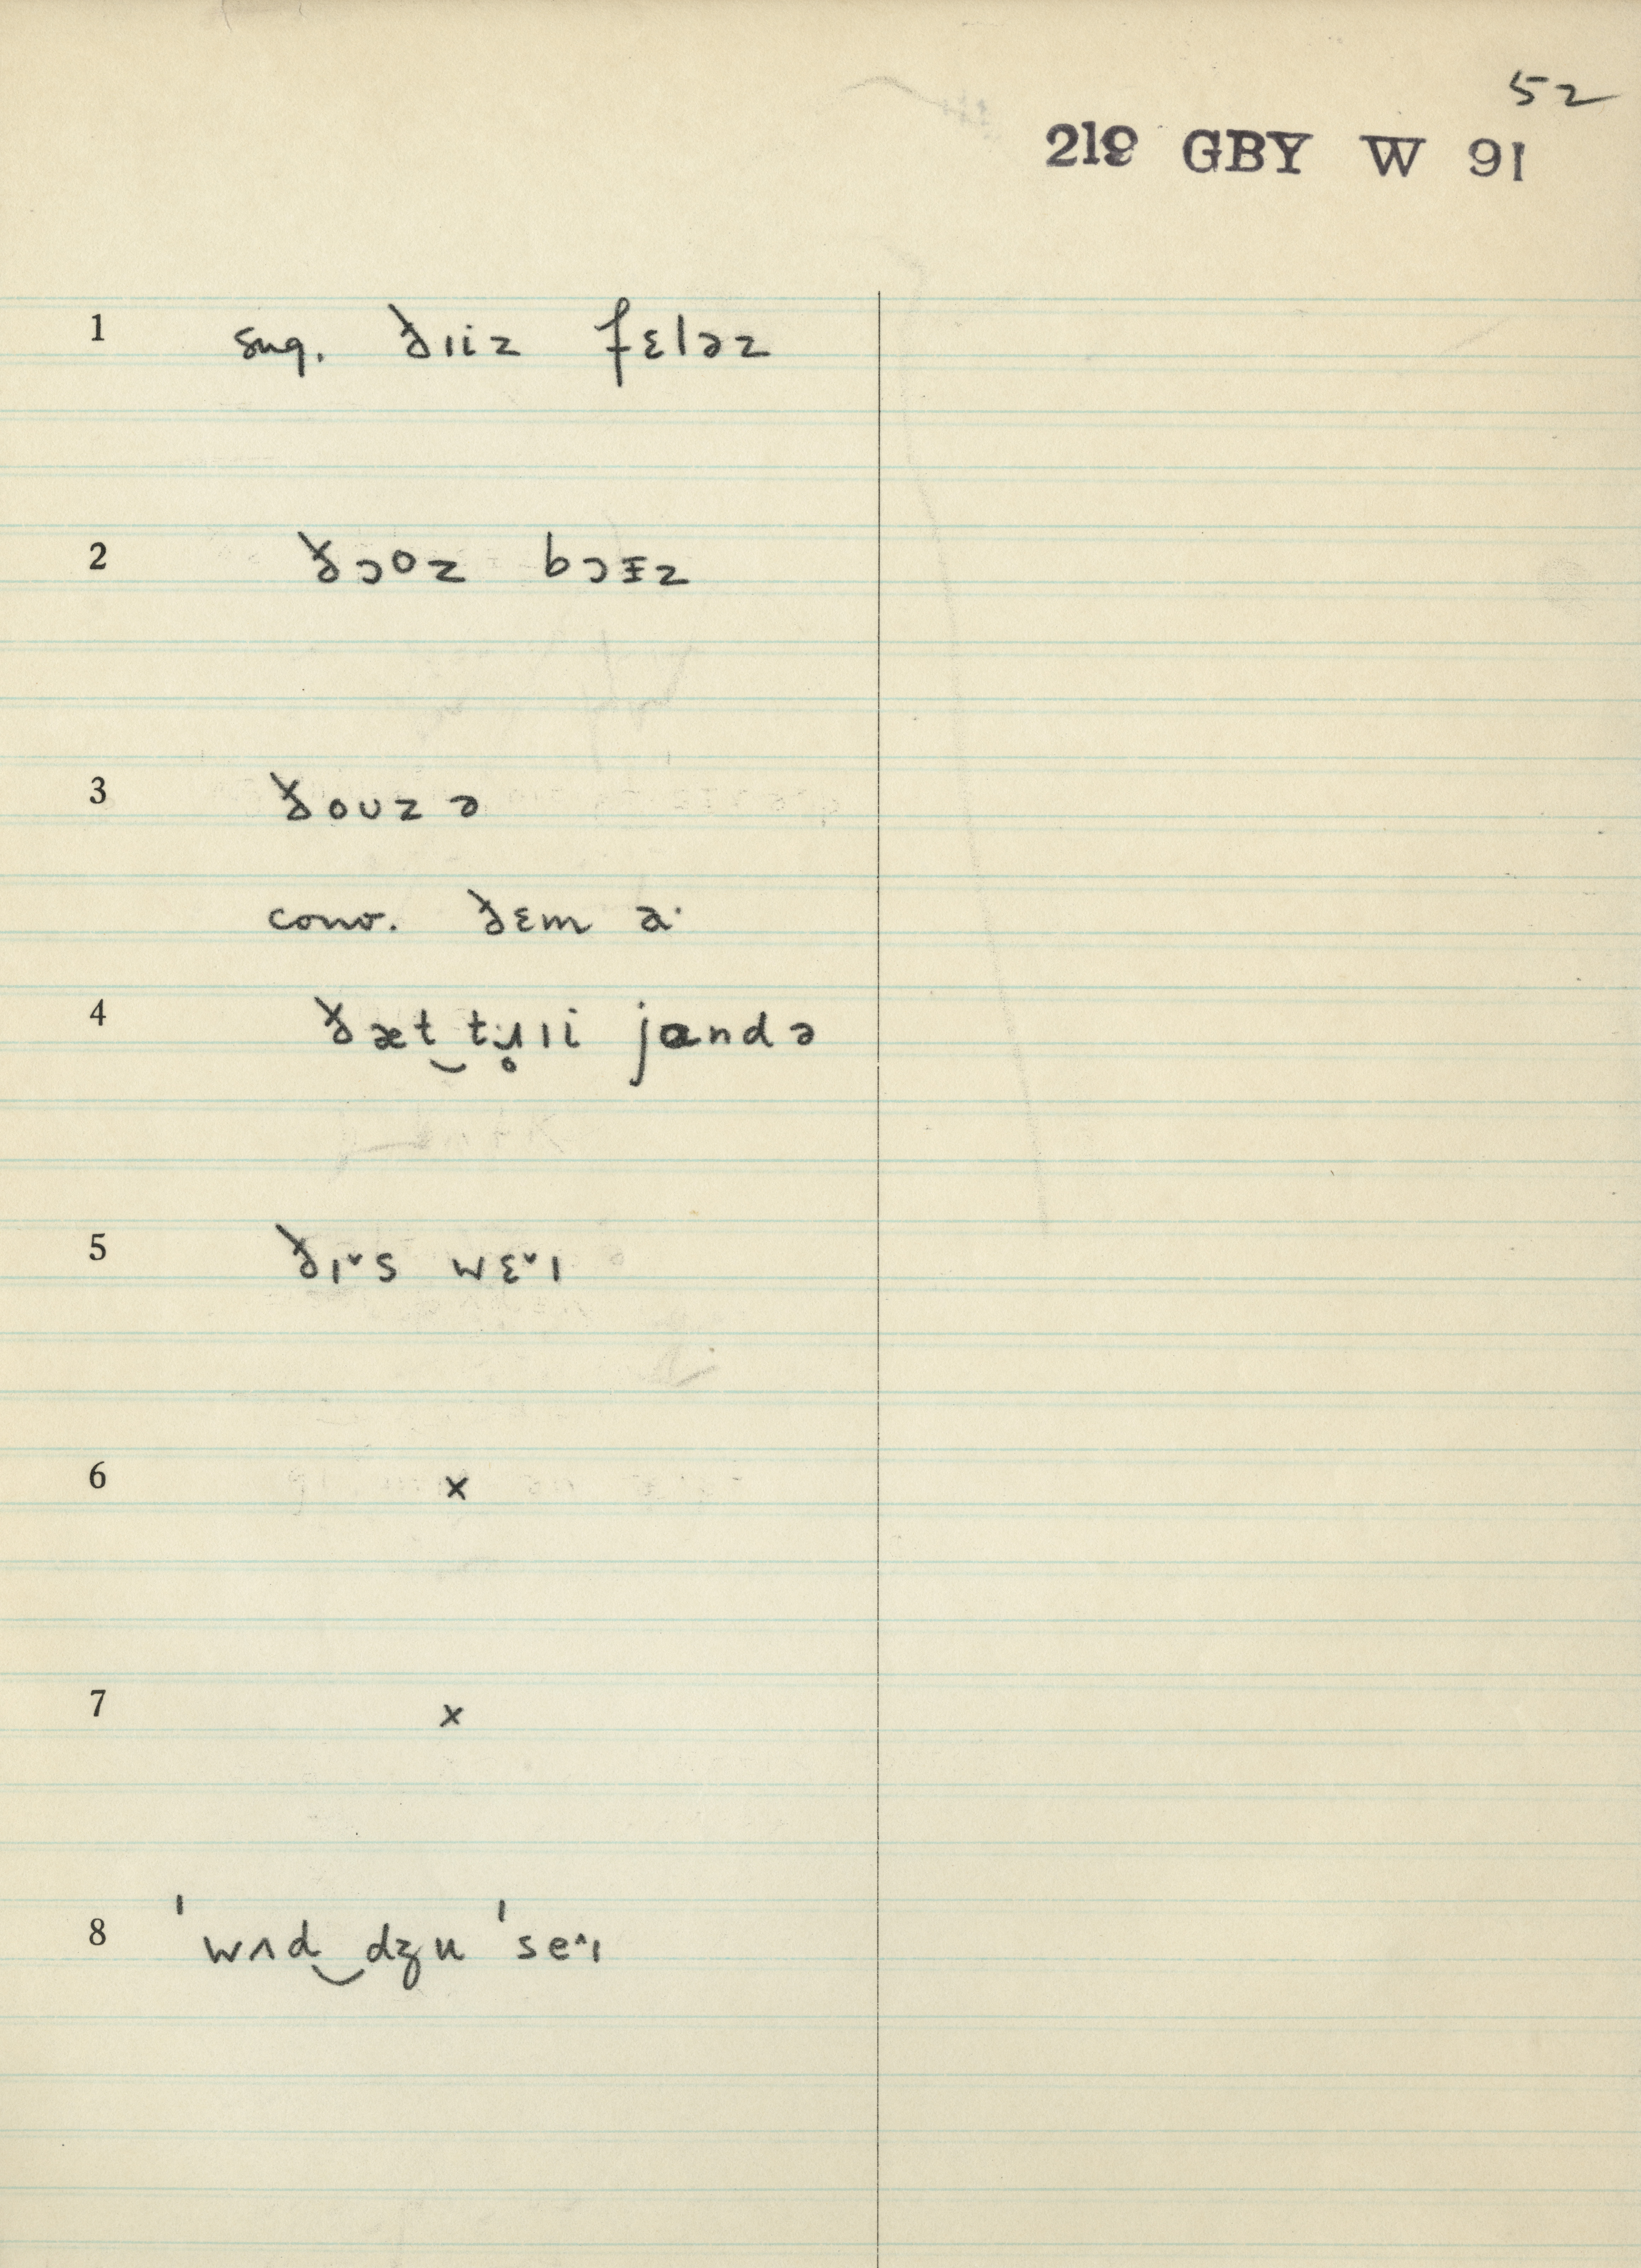 52
219 GBY W 91
1 sug. ðɪiz fɛləz
2 ðɔoz bɔɪz
3 ðouz ə
conv. ðɛm ə·
4 ðæt‿tɹ̥ɪi jɑndə
5 ðɪ˅s wɛ˅ɪ
6 x
7 x
8 ˈwʌd‿dʒu ˈse˄ɪ